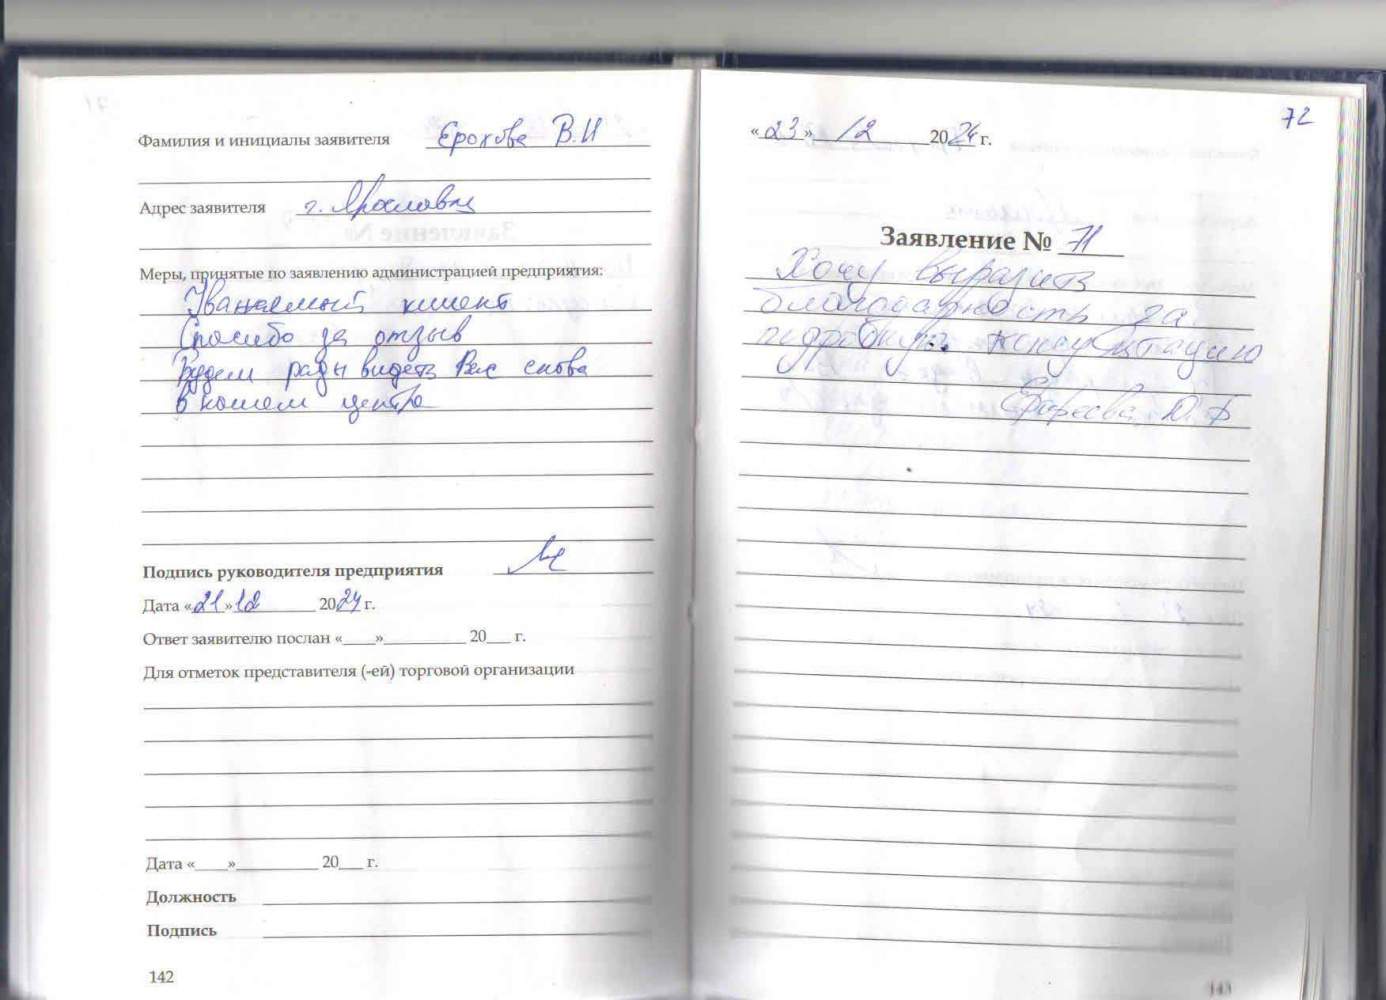 Фамилия и инициалы заявителя Ерохова В.И
Адрес заявителя г. Ярославль
Меры, принятые по заявлению администрацией предприятия:
Уважаемый клиент
Спасибо за отзыв
Будем рады видеть Вас снова
в нашем центре
Подпись руководителя предприятия
Дата «21»12 2024 г.
Ответ заявителю послан «____»__________ 20___ г.
Для отметок представителя (-ей) торговой организации
Дата «____»__________ 20___ г.
Должность
Подпись
142
72
«23» 12 2024 г.
Заявление № 71
Хочу выразить
благодарность за
подробную консультацию
Ю.Б
143